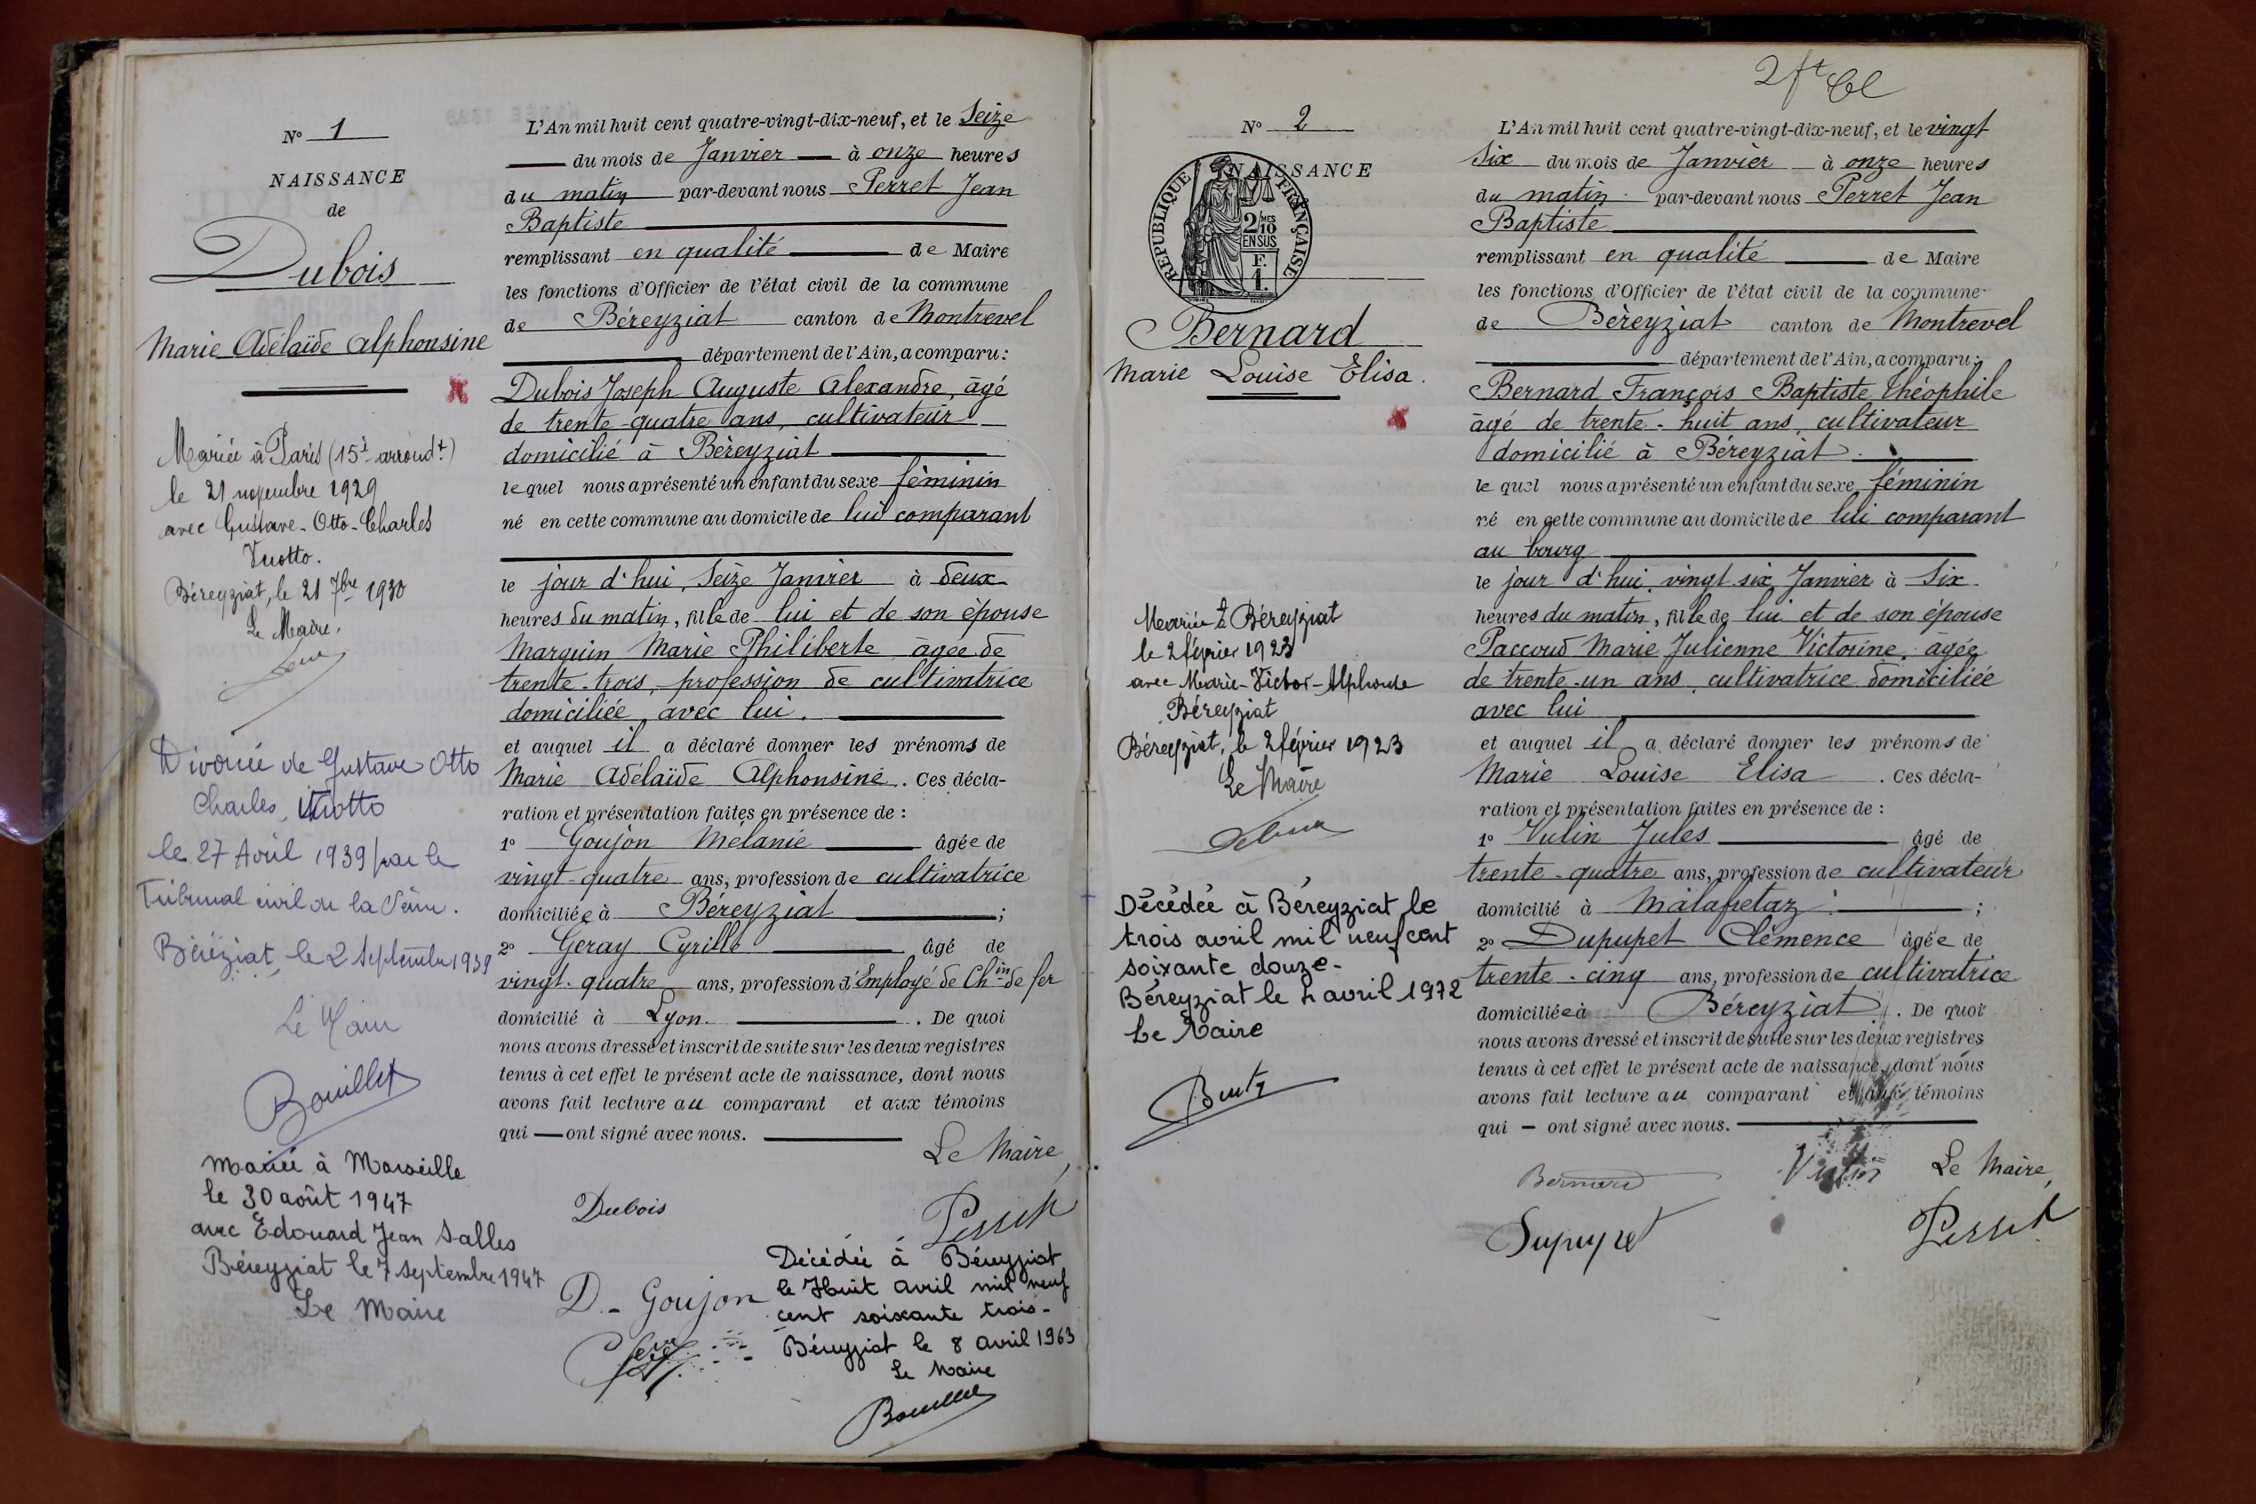 N° 1
NAISSANCE
de
Dubois
Marie Adélaïde Alphonsine
Mariée à Paris (15è arrondt.)
le 21 novembre 1929
avec Gustave-Otto-Charles
Vuotto.
Béreyziat, le 21 7bre 1930
Le Maire,
Divorcée de Gustave Otto
Charles, Vuotto
le 27 Avril 1939 par le
Tribunal civil de la Seine.
Béréziat, le 2 Septembre 1939
Le Maire
Bouillet
Mariée à Marseille
le 30 août 1947
avec Edouard Jean Salles
Béreyziat le 7 septembre 1947
Le Maire
L'An mil huit cent quatre-vingt-dix-neuf, et le Seize
du mois de Janvier à onze heures
du matin par-devant nous Perret Jean
Baptiste
remplissant en qualité de Maire
les fonctions d'Officier de l'état civil de la commune
de Béreyziat canton de Montrevel
département de l'Ain, a comparu:
Dubois Joseph Auguste Alexandre, âgé
de trente-quatre ans, cultivateur
domicilié à Béreyziat
lequel nous a présenté un enfant du sexe féminin
né en cette commune au domicile de lui comparant
le jour d'hui, Seize Janvier à deux
heures du matin, fille de lui et de son épouse
Marguin Marie Philiberte âgée de
trente-trois, profession de cultivatrice
domiciliée avec lui.
et auquel il a déclaré donner les prénoms de
Marie Adélaïde Alphonsine. Ces décla-
ration et présentation faites en présence de :
1° Goujon Mélanie âgée de
vingt-quatre ans, profession de cultivatrice
domiciliée à Béreyziat ;
2° Geray Cyrille âgé de
vingt-quatre ans, profession d'Employé de Chin de fer
domicilié à Lyon. . De quoi
nous avons dressé et inscrit de suite sur les deux registres
tenus à cet effet le présent acte de naissance, dont nous
avons fait lecture au comparant et aux témoins
qui — ont signé avec nous.
Le Maire,
Dubois
Perret
D. Goujon
Décédée à Béreyziat
le Huit avril mil neuf
cent soixante trois-
Béreyziat le 8 avril 1963
Le Maire
Bouillet
2 ft
N° 2
NAISSANCE
RÉPUBLIQUE FRANÇAISE
2/10 MES
EN SUS
F.
1.
Bernard
Marie Louise Elisa.
Mariée à Béreyziat
le 2 février 1923
avec Marie-Victor-Alphonse
Béreyziat
Béreyziat, le 2 février 1923
Le Maire
Décédée à Béreyziat le
trois avril mil neuf cent
soixante douze-
Béreyziat le 4 avril 1972
Le Maire
L'An mil huit cent quatre-vingt-dix-neuf, et le vingt
Six du mois de Janvier à onze heures
du matin par-devant nous Perret Jean
Baptiste
remplissant en qualité de Maire
les fonctions d'Officier de l'état civil de la commune
de Béreyziat canton de Montrevel
département de l'Ain, a comparu:
Bernard François Baptiste Théophile
âgé de trente-huit ans, cultivateur
domicilié à Béreyziat.
lequel nous a présenté un enfant du sexe féminin
né en cette commune au domicile de lui comparant
au bourg
le jour d'hui, vingt six Janvier à Six
heures du matin, fille de lui et de son épouse
Paccoud Marie Julienne Victorine, âgée
de trente-un ans, cultivatrice domiciliée
avec lui
et auquel il a déclaré donner les prénoms de
Marie Louise Elisa . Ces décla-
ration et présentation faites en présence de :
1° Vulin Jules âgé de
trente-quatre ans, profession de cultivateur
domicilié à Malafretaz ;
2° Dupupet Clémence âgée de
trente-cinq ans, profession de cultivatrice
domiciliée à Béreyziat. . De quoi
nous avons dressé et inscrit de suite sur les deux registres
tenus à cet effet le présent acte de naissance, dont nous
avons fait lecture au comparant et aux témoins
qui — ont signé avec nous.
Bernard Vulin Le Maire,
Dupupet Perret